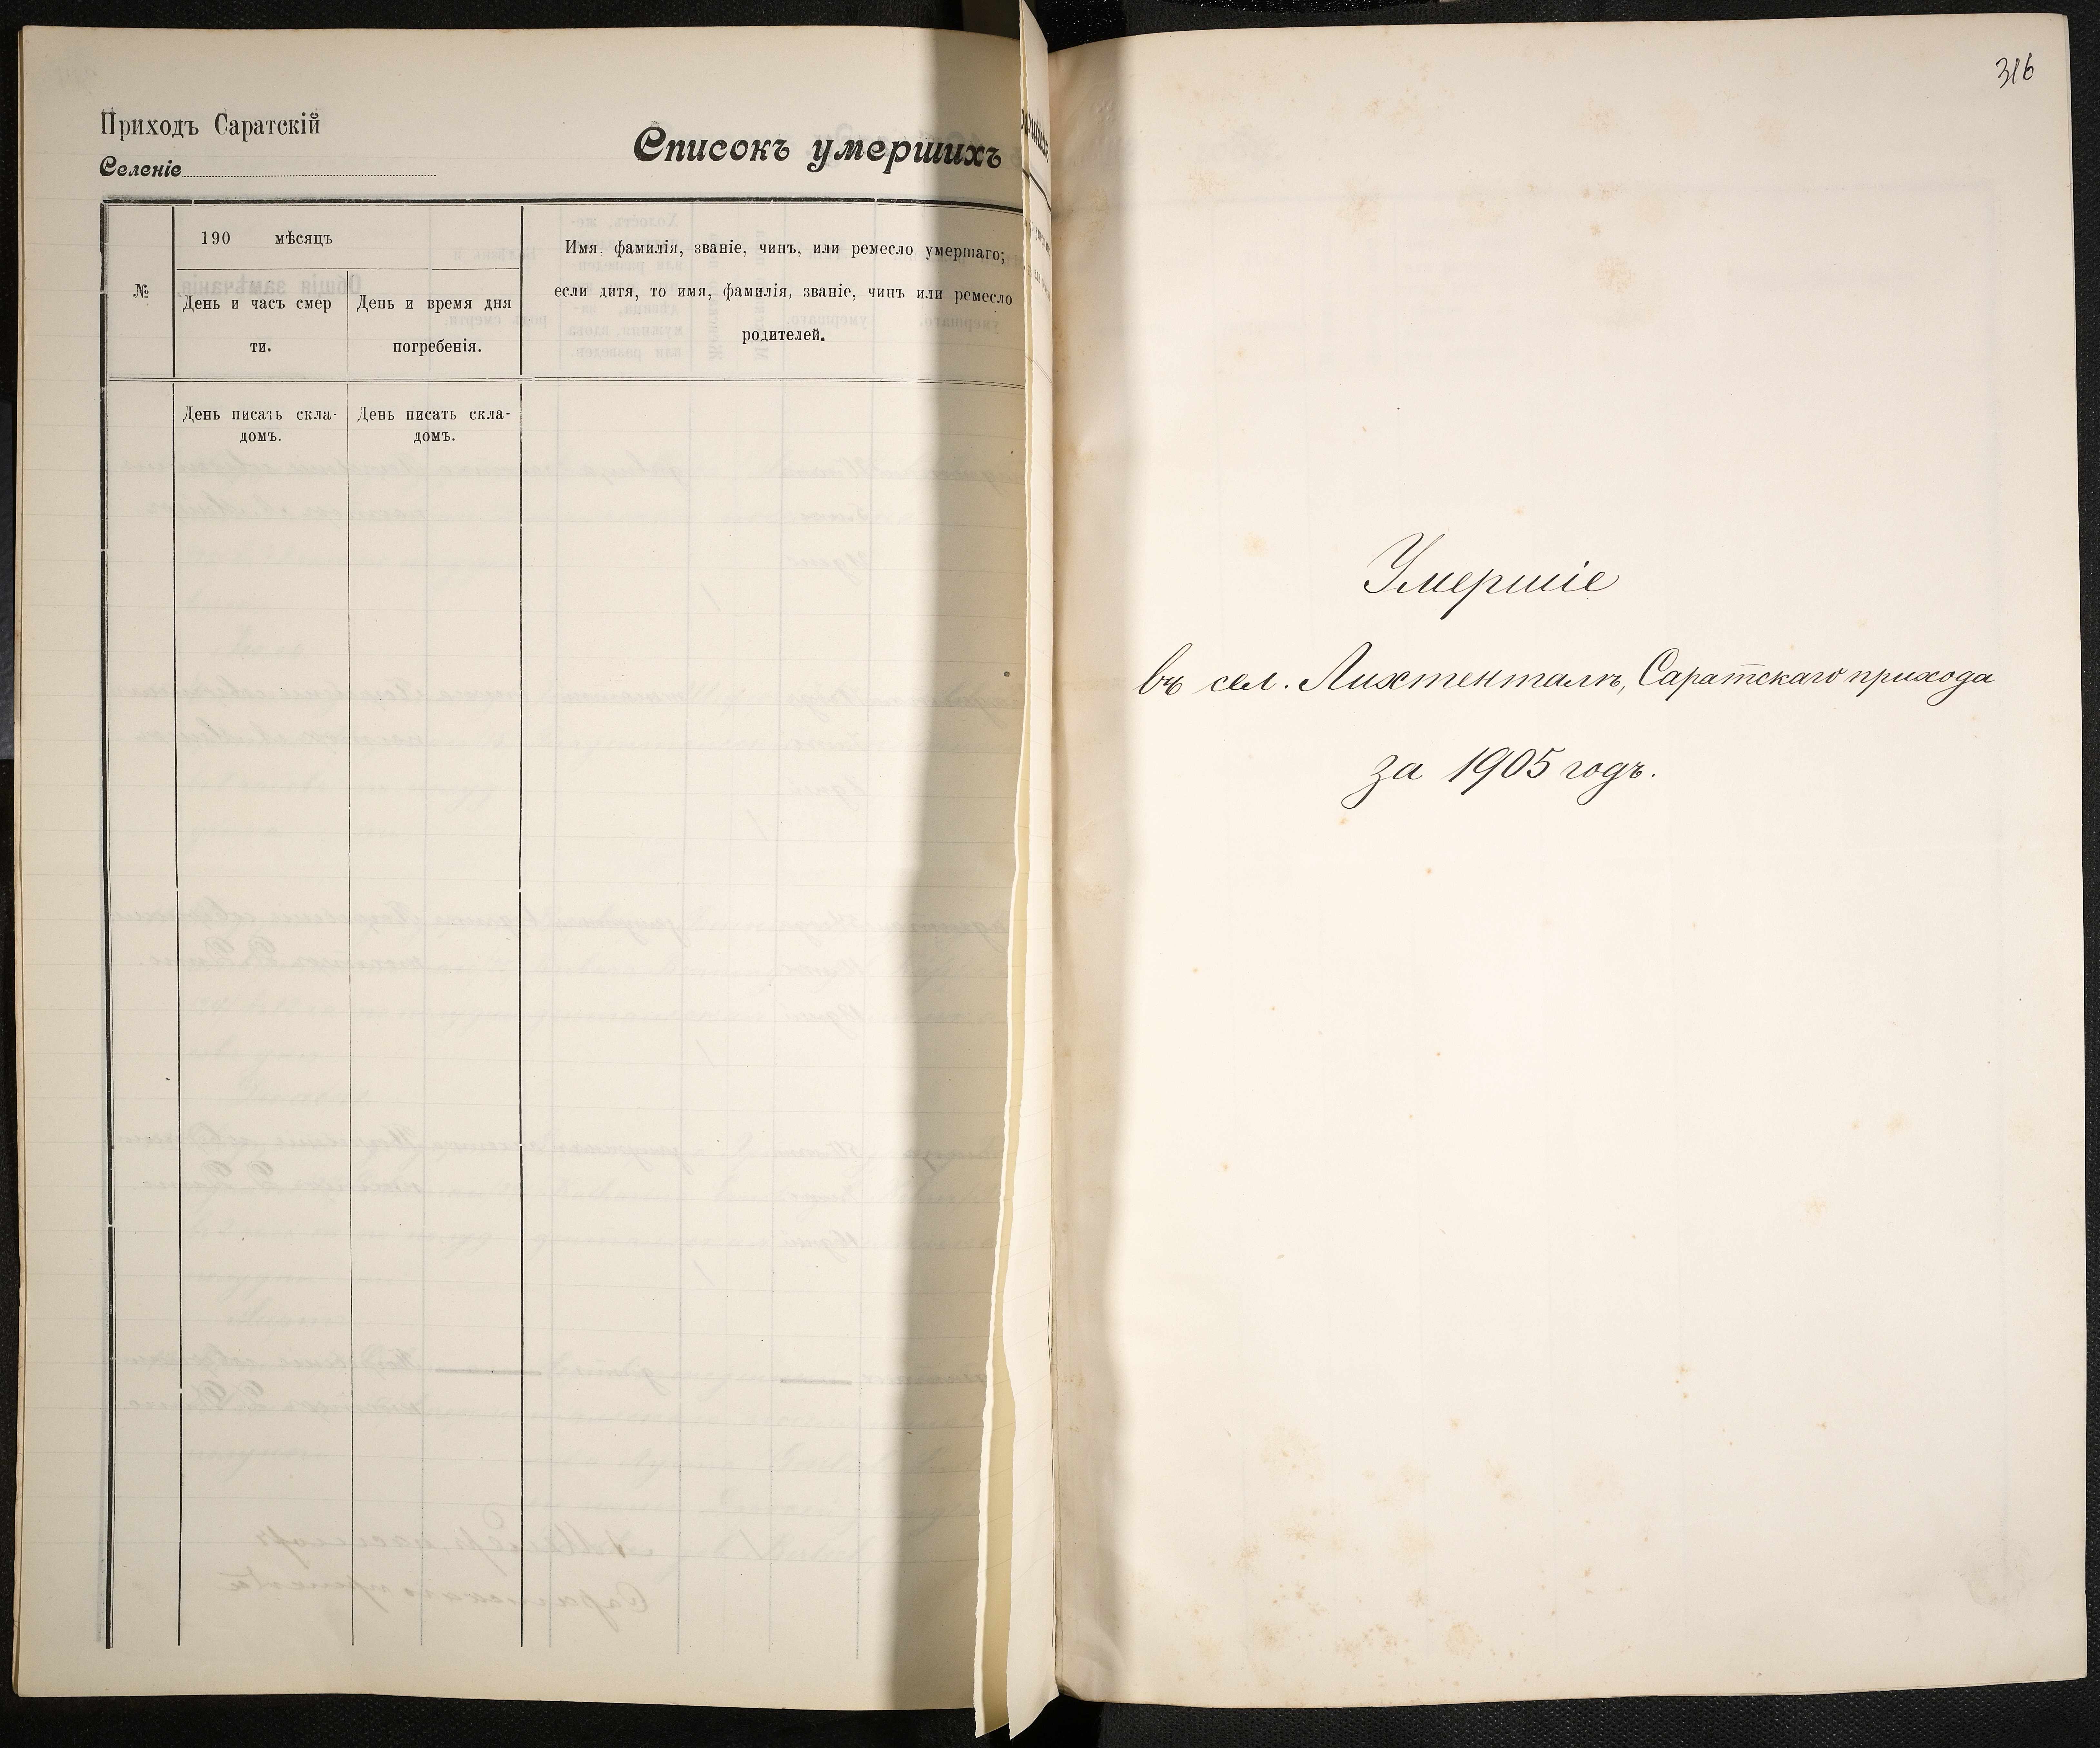 Приходъ Саратскій
Селеніе
Списокъ умершихъ
№
190 мѣсяцъ
День и часъ смер
ти.
День и время дня
погребенія.
Имя, фамилія, званіе, чинъ, или ремесло умершаго;
если дитя, то имя, фамилія, званіе, чинъ или ремесло
родителей.
День писать скла-
домъ.
День писать скла-
домъ.
316
Умершіе
въ сел. Лихтенталъ, Саратскаго прихода
за 1905 годъ.